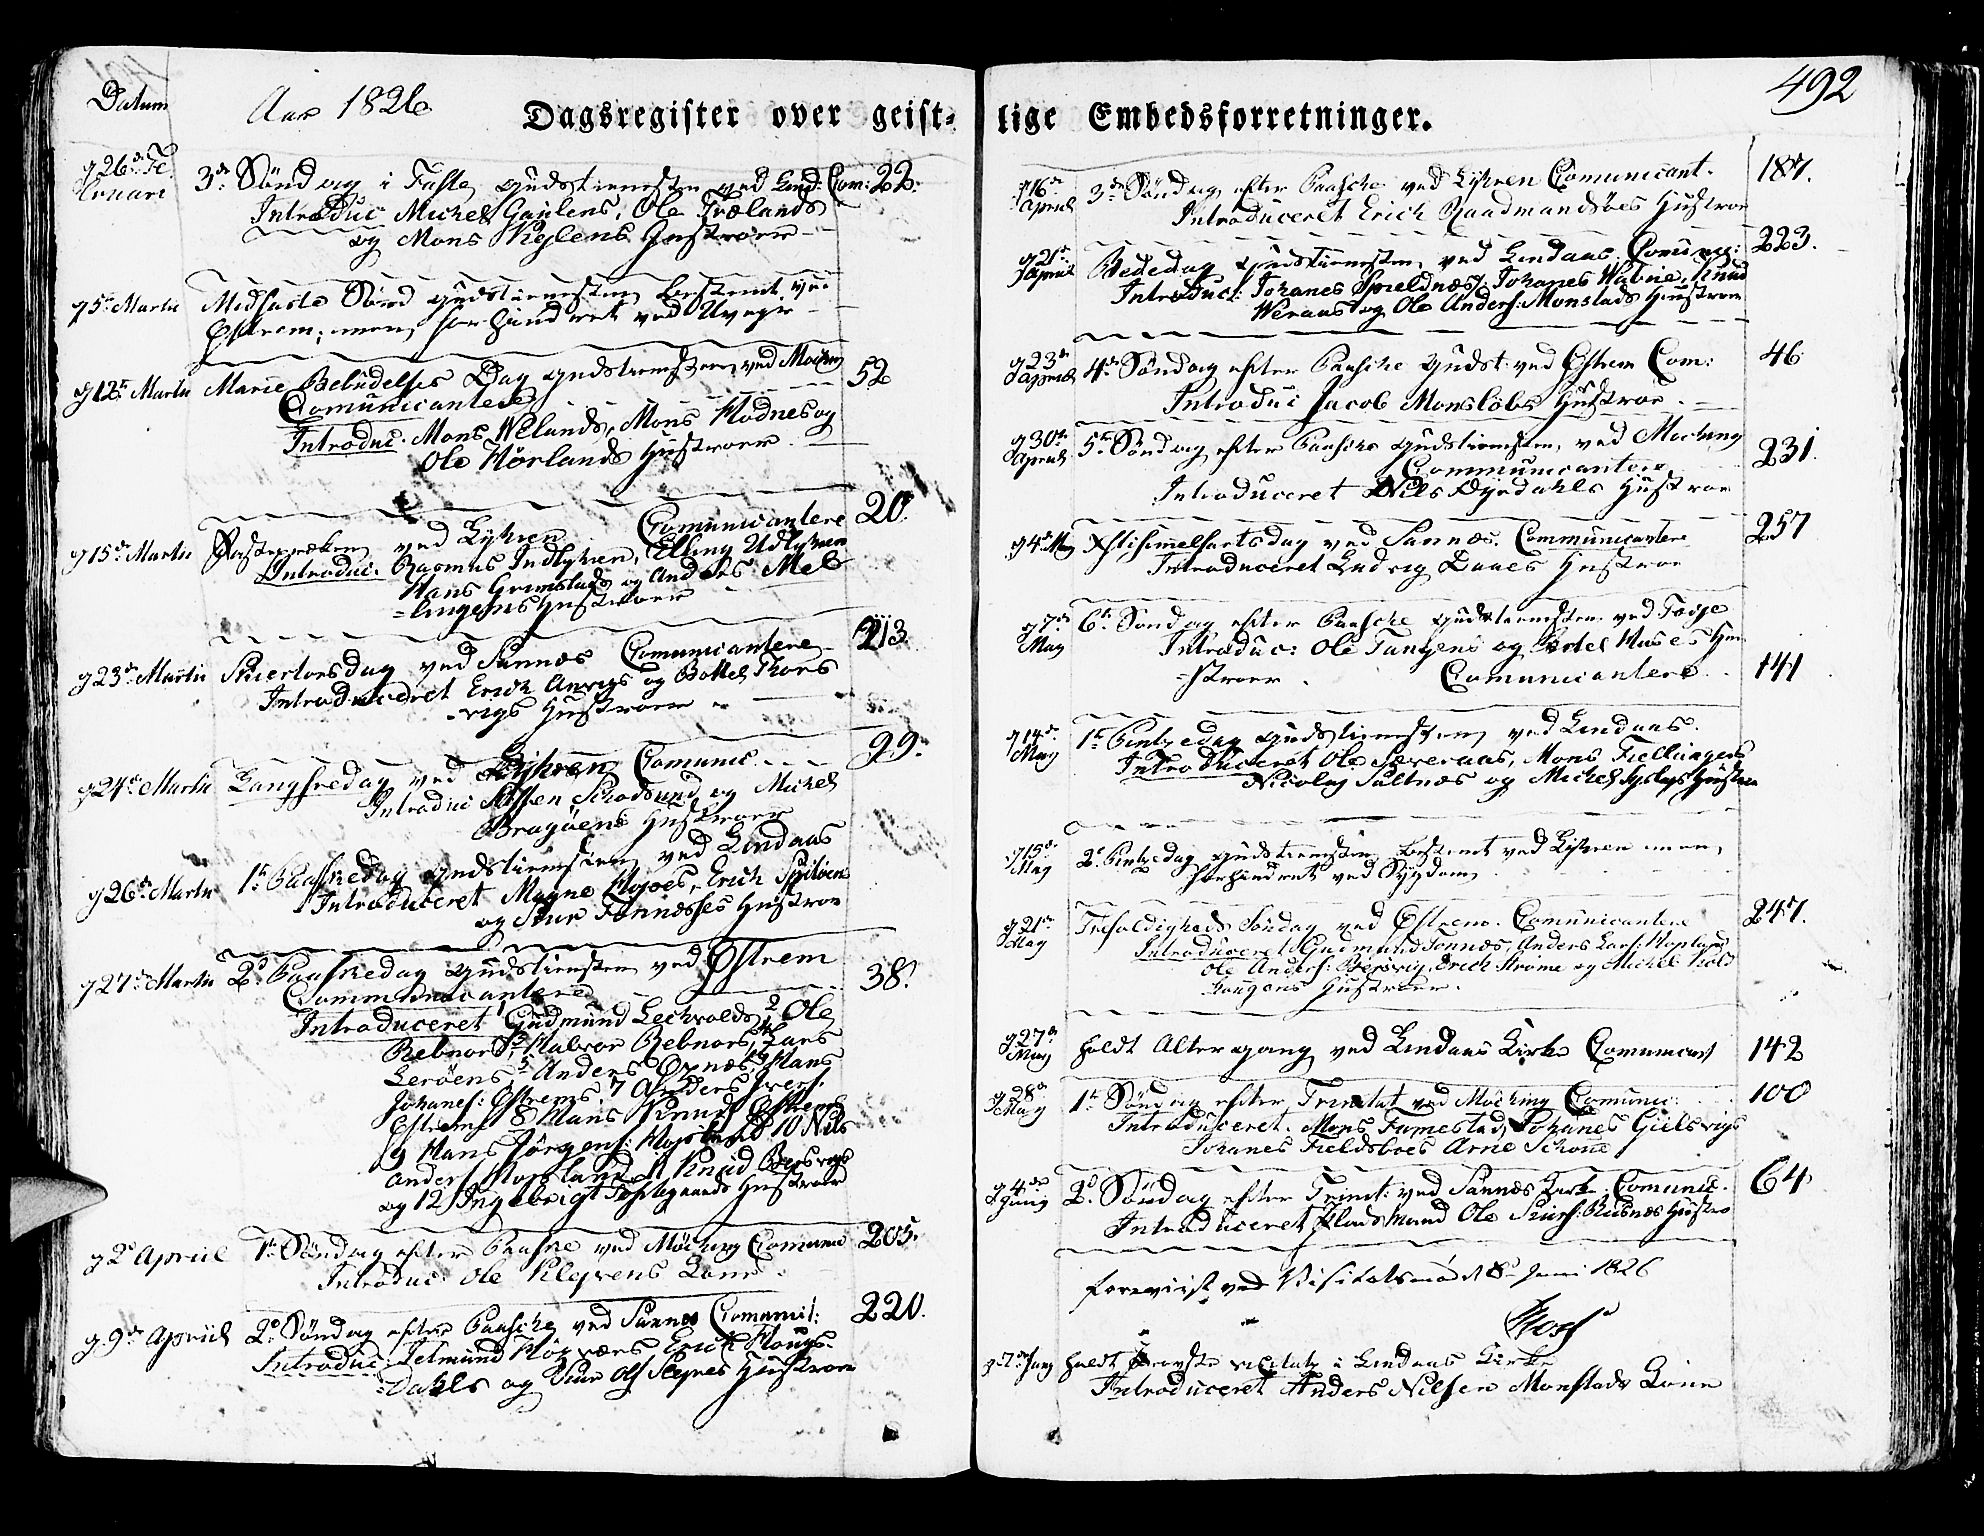 Datum
Aar 1826
Dagsregister over geist-
g 26de Fe-
bruari
3de Søndag i Faste, Gudstienesten ved Lind: Com: 22.
Introduc Michel Gaulens, Ole Trælands
og Mons Keylens Hustroer
g 5te Martii Midfaste Sønd Gudstienesten bestemt ved
Østrem, men forhindret ved Uvejr
g 12te Martii Mariæ Bebudelses Dag Gudstienesten ved Møking
Comunicantere 52
Introduc. Mons Welands, Mons Flodnes og
Ole Hörlands Hustroer
g 15de Martii Fasteprædiken ved Lyhren Comunicantere 20.
Introduc. Rasmus Indlyhren, Elling Udlyhren
Hans Grimstads og Anders Mel-
=lingens Hustroer
g 23de Martii Skiertorsdag ved Sannæs Comunicantere 213
Introduceret Erich Anvigs og Bottel Thors
-vigs Hustroer
g 24de Martii Langfredag ved Lyhren Comunic. 99.
Introduc Steffen Schodsund og Michel
Bragøens Hustroer
g 26de Martii 1te Paaskedag Gudstienesten ved Lindaas
Introduceret Magne Kojoes, Erich Spiloens
og Siur Fonnæsses Hustroe
g 27de Martii 2d Paaskedag Gudstienesten ved Østrem
Communicantere 38.
Introduceret 1 Gudmund Lechvolds, 2 Ole
Rebnors, 3 Halvor Rebnors, 4 Lars
Lerøens, 5 Anders Oxnæs, 6 Hans
Johanes: Østrems, 7 Anders Iver:
Østrem 8 Hans Knuds Østrems
9 Hans Jörgens: Hopsland 10 Nils
Anders: Hopsland 11 Knud Bersvigs
og 12 Ingebrigt Toftegaards Hustroer
g 2d Apriil 1te Søndag efter Paaske ved Møking Comunic 205.
Introduc: Ole Kleyvens Kone.
g 9de Apriil 2d Søndag efter Paaske ved Sannes Comunic: 220.
Introduc: Jetmund Högvers Erich Houys-
=Dahls og Siur Ols Seynes Hustroe
492
lige Embedsforretninger.
g 16de
April
3de Søndag efter Paaske ved Lyhren Comunicant. 187.
Introduceret Erich Raadmandsöes Hustroe
g 21de
April
Bededag Gudstienesten ved Lindaas Comunic: 223.
Introduc: Johanes Spieldnæs, Johanes Wabne, Knud
Weraas og Ole Anders: Monstads Hustroer
g 23de
April
4de Søndag efter Paaske Gudst: ved Østrem Com: 46
Introduc Jacob Monslobs Hustroe.
g 30te
April
5te Søndag efter Paaske Gudstienesten ved Moking
Communicantere 231.
Introduceret Nils Dyrdahls Hustroe
g 4de May Xsti himmelfartsdag ved Sannæs. Communicantere 257
Introduceret Ludvig Daaes Hustroe
g 7de
May
6te Søndag efter Paaske Gudstienesten ved Foije
Introduc: Ole Tangens og Bertel Huses Hu-
=stroer. Comunicantere 141
g 14de
May
1te Pintzedag Gudstienesten ved Lindaas.
Introduceret Ole Sæveraas, Mons Fiellingers
Nicolay Saltnæs og Michel Hustroe
g 15de
May
2d Pintzedag Gudstienesten bestemt ved Lyhren men
forhindret ved Sygdom
g 21de
May
Trefoldigheds Søndag ved Østrem. Comunicantere 247.
Introduceret Gudmund Fonnæs, Anders Lars: Hoplands
Ole Anders: Bersvig, Erich Strøms og Michel Kols
Hougens Hustroer.
g 27de
May
Holdt Altergang ved Lindaas Kirke Comunicant 142
g 28de
May
1te Søndag efter Trinitat ved Møking Comunic: 100
Introduceret. Mons Famestad, Johanes Giilsvigs
Johanes Fieldsboes Arne Schone
g 4de
Juny
2d. Søndag efter Trinit: ved Sannæs Kirke. Comunic. 64.
Introduceret Flodsmand Ole Siurs: Risnæs Hustroe
foreviist ved Visitatsmødet 8de Juni 1826
g 7de Juny Holdt Provste visitatz i Lindaas Kirke
Introduceret Anders Nilsen Monstads Kone